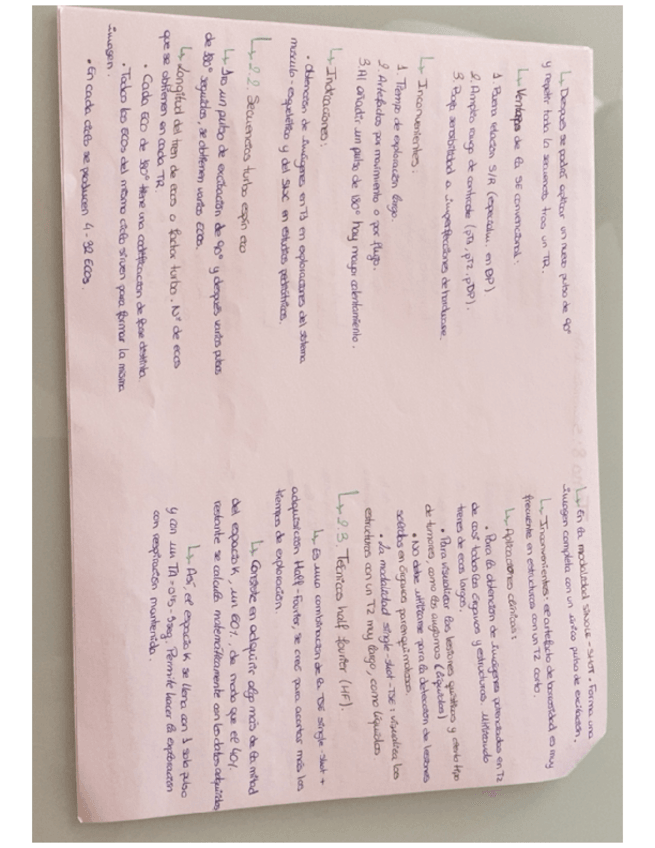 ↳ Después se podrá aplicar un nuevo pulso de 90°
y repetir toda la secuencia tras un TR.
↳ Ventajas de la SE convencional:
1. Buena relación S/R (especialm. en DP)
2. Amplio rango de contraste (pT1, pT2, pDP).
3. Baja sensibilidad a imperfecciones de hardware.
↳ Inconvenientes:
1. Tiempo de exploración largo.
2. Artefactos por movimiento o por flujo.
3. Al añadir un pulso de 180° hay mayor calentamiento.
↳ Indicaciones:
• Obtención de imágenes en T1 en exploraciones del sistema
músculo-esquelético y del SNC en estudios pediátricos.
↳ 2.2. Secuencias turbo espín eco
↳ Tras un pulso de excitación de 90° y después varios pulsos
de 180° seguidos, se obtienen varios ecos.
↳ Longitud del tren de ecos o factor turbo. Nº de ecos
que se obtienen en cada TR.
• Cada eco de 180° tiene una codificación de fase distinta
• Todos los ecos del mismo ciclo sirven para formar la misma
imagen.
• En cada ciclo se producen 4 - 32 ecos.
↳ En la modalidad single-shot. Forma una
imagen completa con un único pulso de excitación.
↳ Inconvenientes: el artefacto de borrosidad es muy
frecuente en estructuras con un T2 corto.
↳ Aplicaciones clínicas:
• Para la obtención de imágenes potenciadas en T2
de casi todos los órganos y estructuras. Utilizando
trenes de ecos largos.
• Para visualizar las lesiones quísticas y cierto tipo
de tumores, como los angiomas (líquidos)
• No debe utilizarse para la detección de lesiones
sólidas en órganos parenquimatosos.
• La modalidad single-shot-TSE: visualiza las
estructuras con un T2 muy largo, como líquidos
↳ 2.3. Técnicas half fourier (HF).
↳ Es una combinación de la TSE single-shot +
adquisición Half-Fourier, se creó para acortar más los
tiempos de exploración.
↳ Consiste en adquirir algo más de la mitad
del espacio K, un 60%, de modo que el 40%
restante se calcula matemáticamente con los datos adquiridos
↳ Así, el espacio K se llena con 1 solo pulso
y con un TA= Permite hacer la exploración
con respiración mantenida.